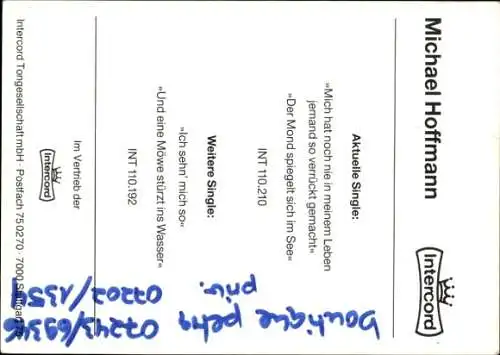 Michael Hoffmann
Intercord
Aktuelle Single:
»Mich hat noch nie in meinem Leben
jemand so verrückt gemacht«
»Der Mond spiegelt sich im See«
INT 110.210
Weitere Single:
»Ich sehn' mich so«
»Und eine Möwe stürzt ins Wasser«
INT 110.192
Im Vertrieb der
Intercord
Intercord Tongesellschaft mbH · Postfach 75 02 70 · 7000 Stuttgart 75
boutique petra
priv.
07243/69346
07202/1359